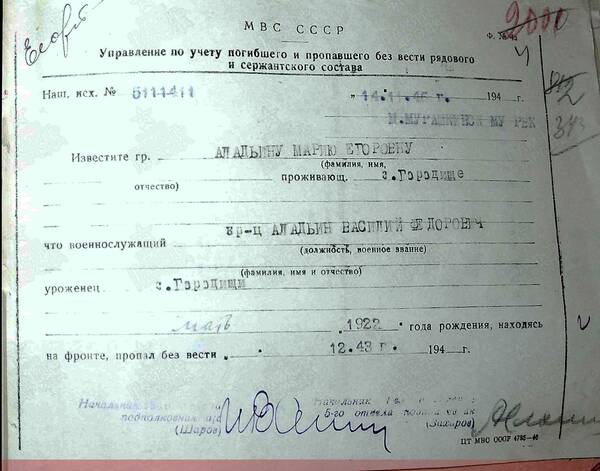 МВС СССР
Ф. №
2000
Управление по учету погибшего и пропавшего без вести рядового
и сержантского состава
Наш. исх. № 5111411 „14.11.46 г. 194 г.
Известите гр. АЛАДЬИНУ МАРИЮ ЕГОРОВНУ
(фамилия, имя,
отчество) проживающ. с.Городище
что военнослужащий кр-ц АЛАДЬИН ВАСИЛИЙ ФЕДОРОВИЧ
(должность, военное звание)
(фамилия, имя и отчество)
уроженец с.Городищи
мать 1922 года рождения, находясь
на фронте, пропал без вести 12.43 г. 194 г.
Начальник Начальник
подполковник 5-го отдела
(Шаров) (Захаров)
ЦТ МВО СССР 4785—46